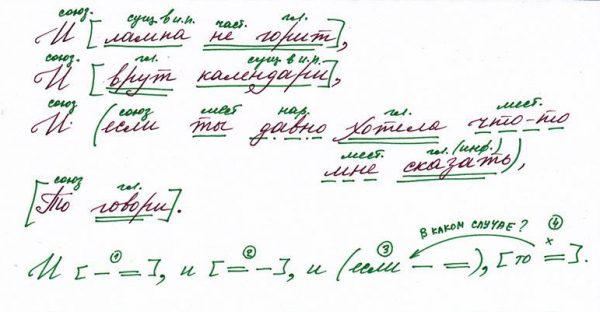 союз. сущ в и.п. част. гл.
И [лампа не горит],
союз. гл. сущ в и.п.
И [врут календари],
союз союз мест нар. гл. мест.
И (если ты давно хотела что-то
мест. гл. (инф.)
мне сказать),
союз гл.
[То говори].
В КАКОМ СЛУЧАЕ?
1 2 3 х 4
И [– =], и [= –], и (если – =), [то =].